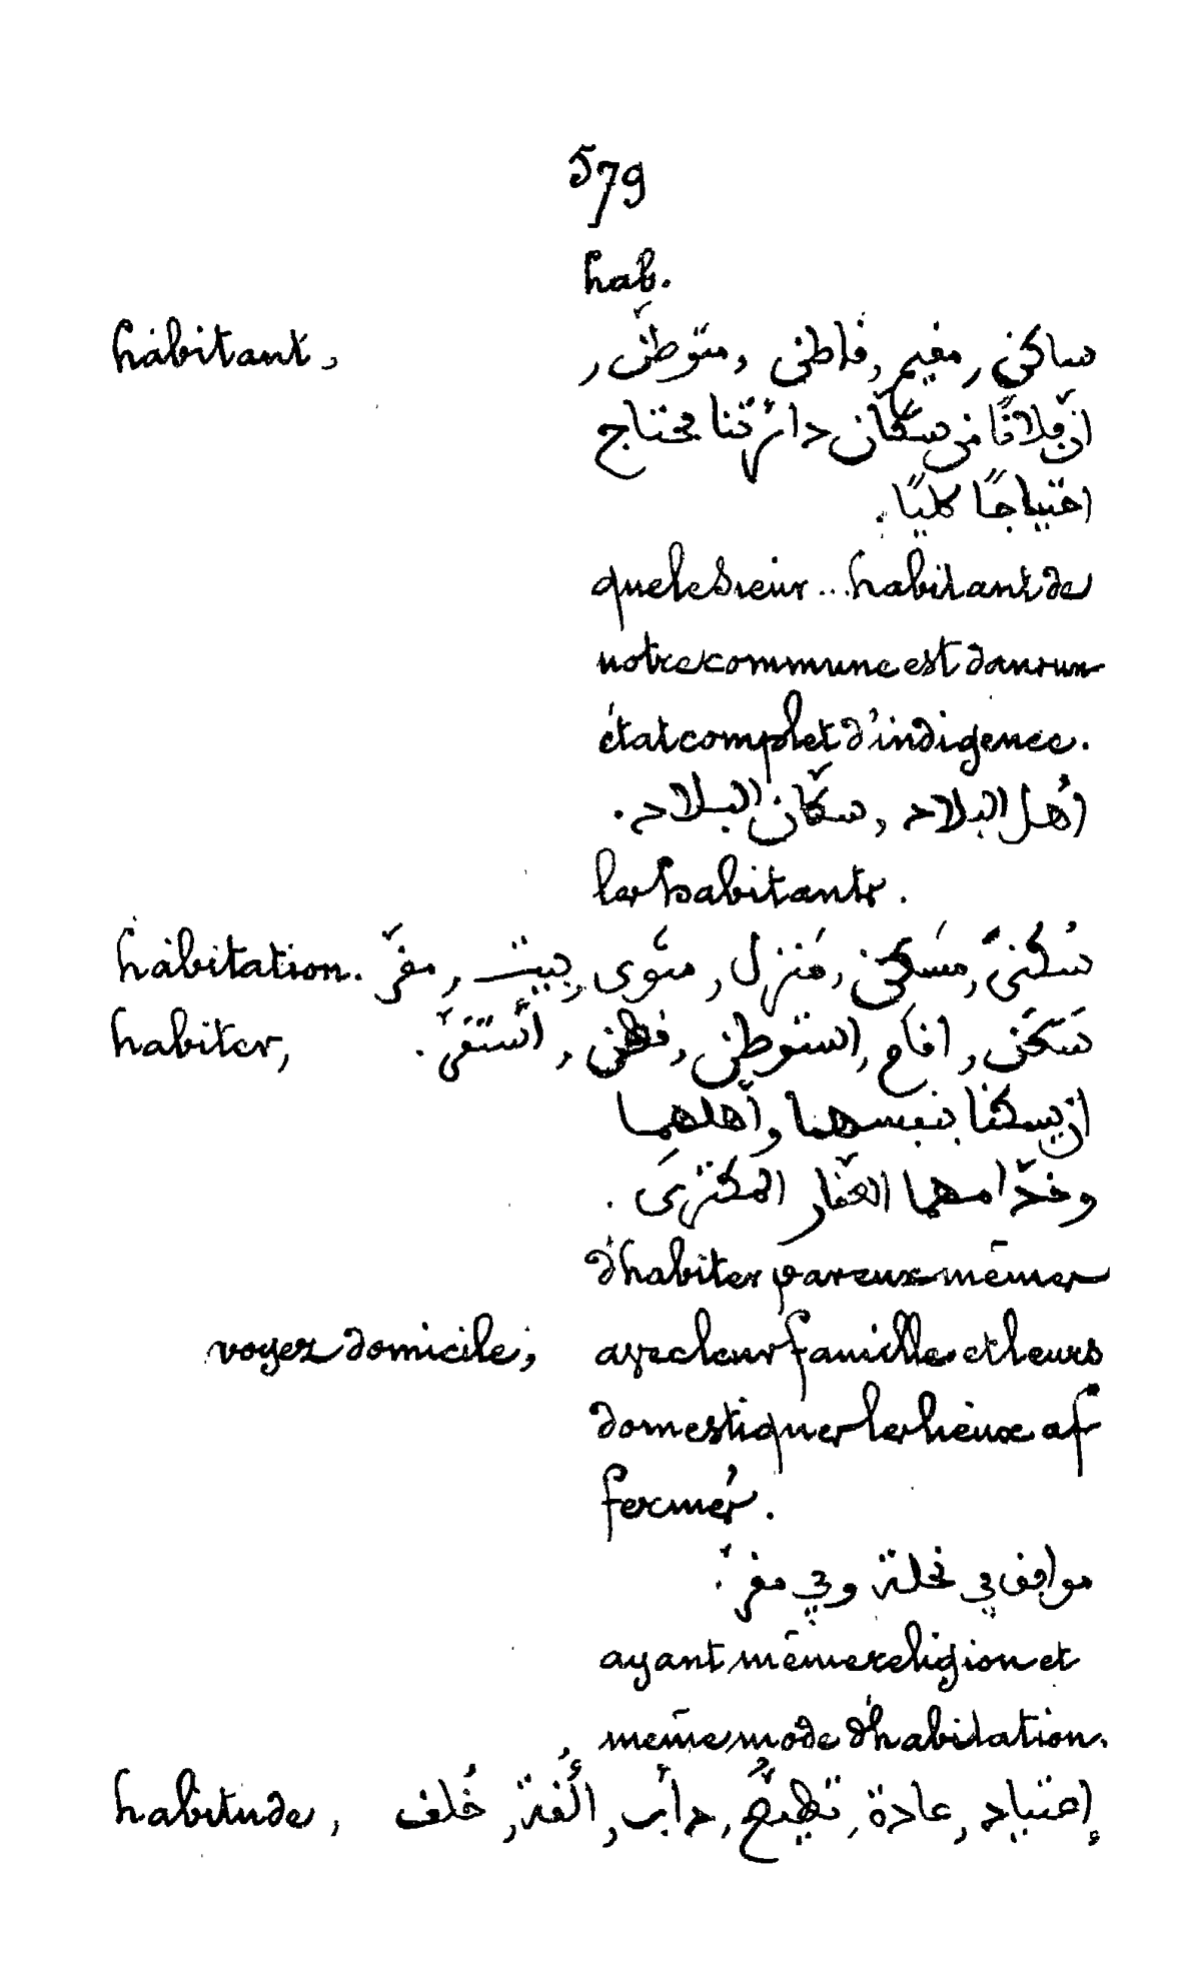 579
hab.
habitant, ساكن, مقيم, قاطن, متوطّن,
انّ فلانًا من سكّان دائرتنا محتاج
احتياجًا كليًّا.
que le Sieur... habitant de
notre commune est dans un
état complet d'indigence.
أهل البلاد, سكّان البلاد.
les habitants.
habitation. سُكنىً, مَسكن, مَنزل, مثوى, بيت, مقرّ.
habiter, سَكَن, اقام, استوطن, قطن, استقرّ.
ان يسكنا بنفسهما وأهلهما
وخدّامهما العقّار المكترى.
d'habiter par eux-mêmes
voyez domicile; avec leur famille et leurs
domestiques les lieux af
fermés.
موافق في نحلة وفي مقرّ.
ayant même religion et
même mode d'habitation.
habitude, إعتياد, عادة, دأب, ألفة, خُلق